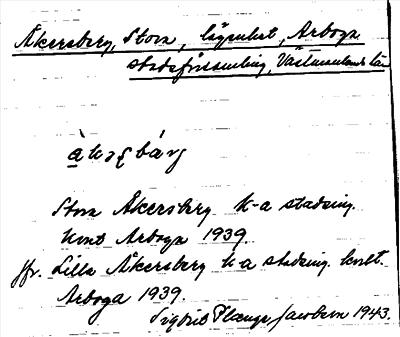 Åkersberg, Stora, lägenhet, Arboga
stadsförsamling, Västmanlands län
Stora Åkersberg k-a stadsäg.
Arboga 1939.
jfr. Lilla Åkersberg k-a stadsäg. kvlt.
Arboga 1939.
Sigbrit Plænge Jacobson 1943.